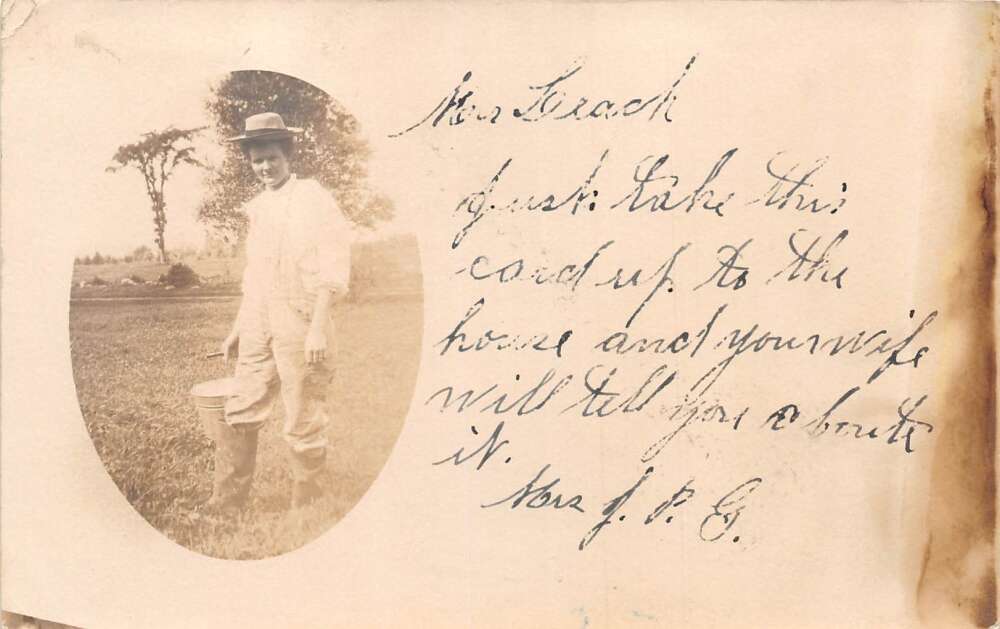 Mrs Leach
Just take this
card up to the
house and your wife
will tell you aboute
it.
Mrs J. P. G.